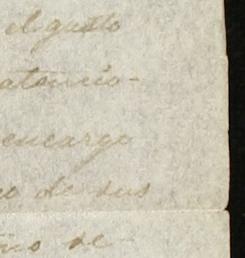 el gusto
atencio-
encargo
de sus
se